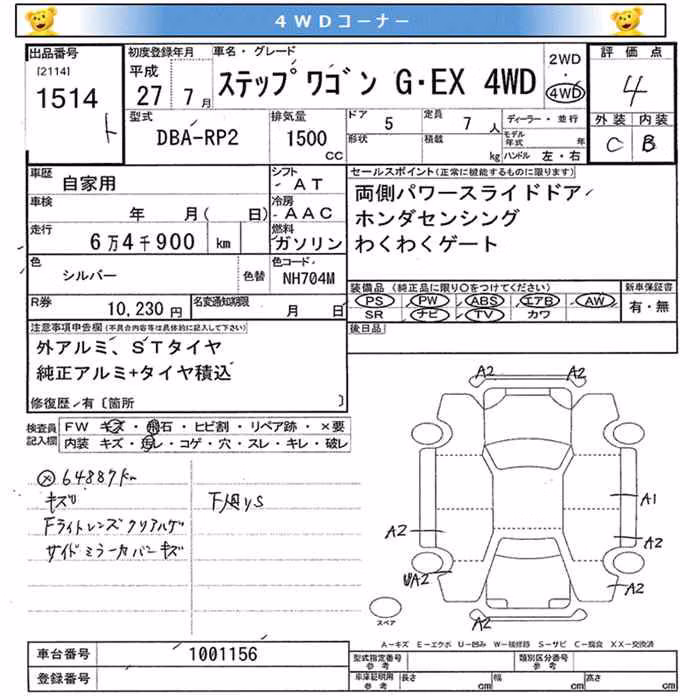 4WDコーナー
出品番号 初度登録年月 車名・グレード 2WD・4WD 評価点
[2114] 1514 ト 平成27 7月 ステップワゴン G・EX 4WD 4
型式 DBA-RP2 排気量 1500 CC ドア 5 定員 7 人 ディーラー・並行 外装 内装
形状 積載 kg モデル年式 年 ハンドル 左・右 C B
車歴 自家用 シフト AT セールスポイント(正常に機能するものに限ります)
車検 年 月( 日) 冷房 AAC 両側パワースライドドア
走行 6万4千900 km 燃料 ガソリン ホンダセンシング
わくわくゲート
色 シルバー 色替 色コード NH704M 装備品(純正品に限り○をつけてください) 新車保証書
PS PW ABS エアB AW 有・無
SR ナビ TV カワ
R券 10,230円 名変通知期限 月 日 後日品
注意事項申告欄(不具合内容等は具体的に記入して下さい)
外アルミ、STタイヤ
純正アルミ+タイヤ積込
修復歴・有〔箇所 〕
検査員記入欄 FW キズ・飛石・ヒビ割・リペア跡・×要
内装 キズ・汚レ・コゲ・穴・スレ・キレ・破レ
64887km
キズリ
Fライトレンズクリアハゲ
サイドミラーカバーキズ
A2 A2
A1
A2 A2
UA2 A2
A2
スペア
A-キズ E-エクボ U-凹み W-補修跡 S-サビ C-腐食 XX-交換済
車台番号 1001156 型式指定番号参考 類別区分番号参考
登録番号 車庫証明用参考 長さ cm 幅 cm 高さ cm